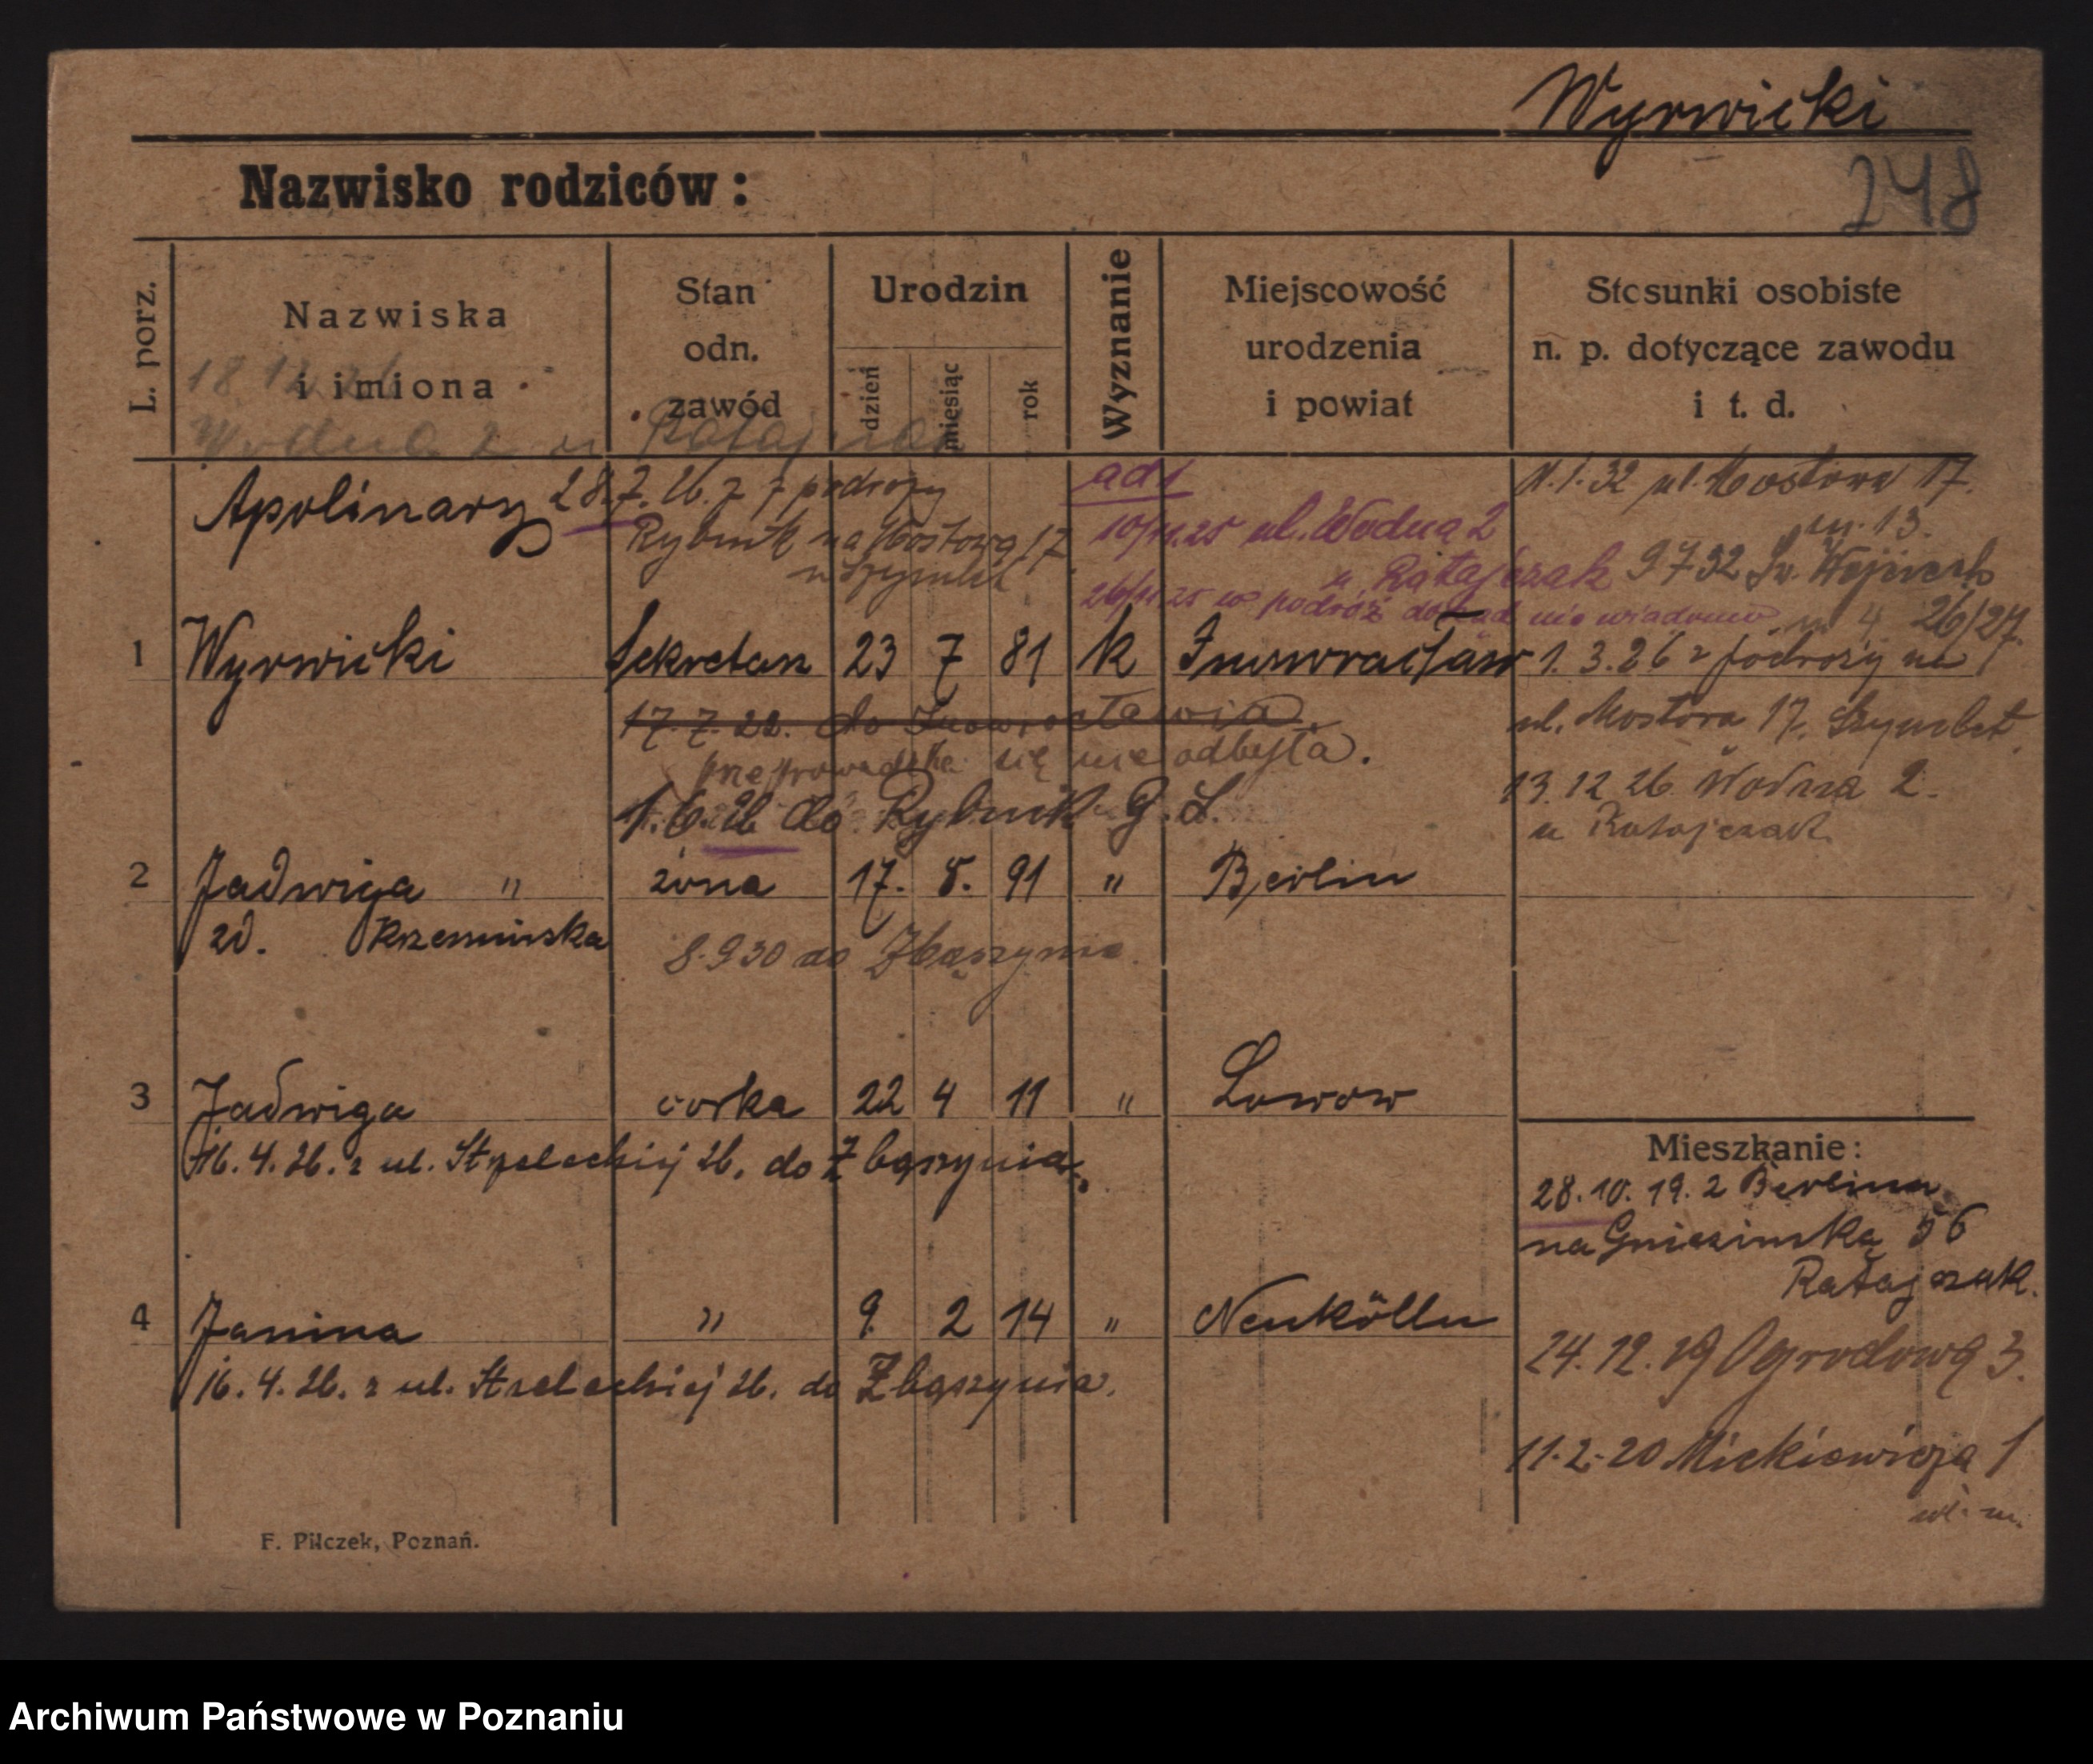 Wyrwicki
248
Nazwisko rodziców:
L. porz.
Nazwiska
i imiona
Stan
odn.
zawód
Urodzin
dzień
miesiąc
rok
Wyznanie
Miejscowość
urodzenia
i powiat
Stosunki osobiste
n. p. dotyczące zawodu
i t. d.
18 12
Wodna 2 u Ratajczak
Apolinary 28.7.26. z podróży
Rybnik na Mostową 17
ad 1
10/11.25 ul. Wodna 2
u Ratajczak
26/11 25 w podróż dokąd nie wiadomo
1.32 ul. Mostowa 17.
m. 13.
9 7 32 Św. Wojciech
m 4 26/27.
1 Wyrwicki Sekretarz 23 7 81 k Inowrocław 1. 3. 26 z podróży na
ul. Mostowa 17. Szymbet
17. 7. 22. do Inowrocławia
przeprowadzka się nie odbyła.
13. 12 26 Wodna 2.
u Ratajczak
1. 6. 26 do Rybnik G. S.
2 Jadwiga " żona 17. 8. 91 " Berlin
zd. Krzesinska
8.9 30 do Zbąszynia.
3 Jadwiga corka 22 4 11 " Lwow
16. 4. 26. z ul. Strzeleckiej 26. do Zbąszynia.
Mieszkanie:
28. 10. 19. z Berlina
na Gnieźinską 56
Ratajczak.
4 Janina " 9 2 14 " Neukölln
16. 4. 26. z ul. Strzeleckiej 26. do Zbąszynia.
24. 12. 19 Ogrodową 3.
11. 2. 20 Mickiewicza 1
wł. m.
F. Pilczek, Poznań.
Archiwum Państwowe w Poznaniu